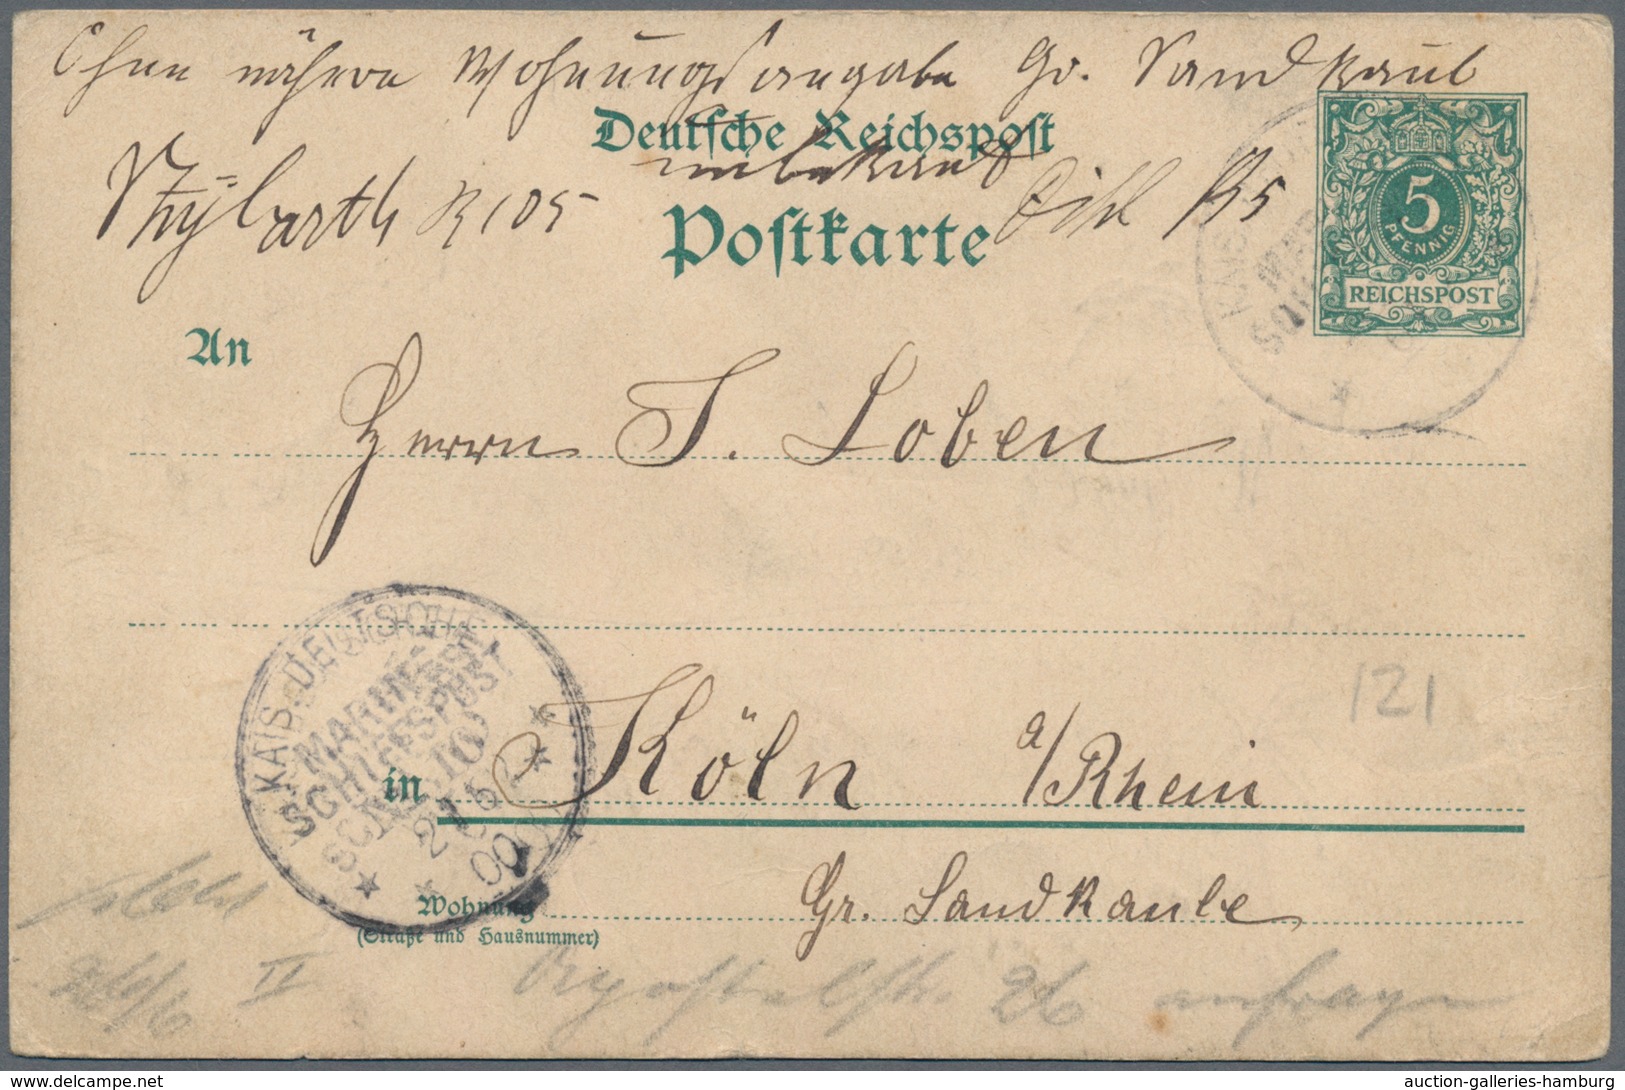 Ohne nähere Wohnungsangabe Gr. Sandkaul
Deutsche Reichspost
unbekannt
Postkarte
5
PFENNIG
REICHSPOST
An
Herrn J. Loben
KAIS. DEUTSCHE
MARINE-
SCHIFFSPOST
27 6
00
in Köln a/Rhein
121
Wohnung Gr. Sandkaule
(Straße und Hausnummer)
II
26 anfragen
auction-galleries-hamburg